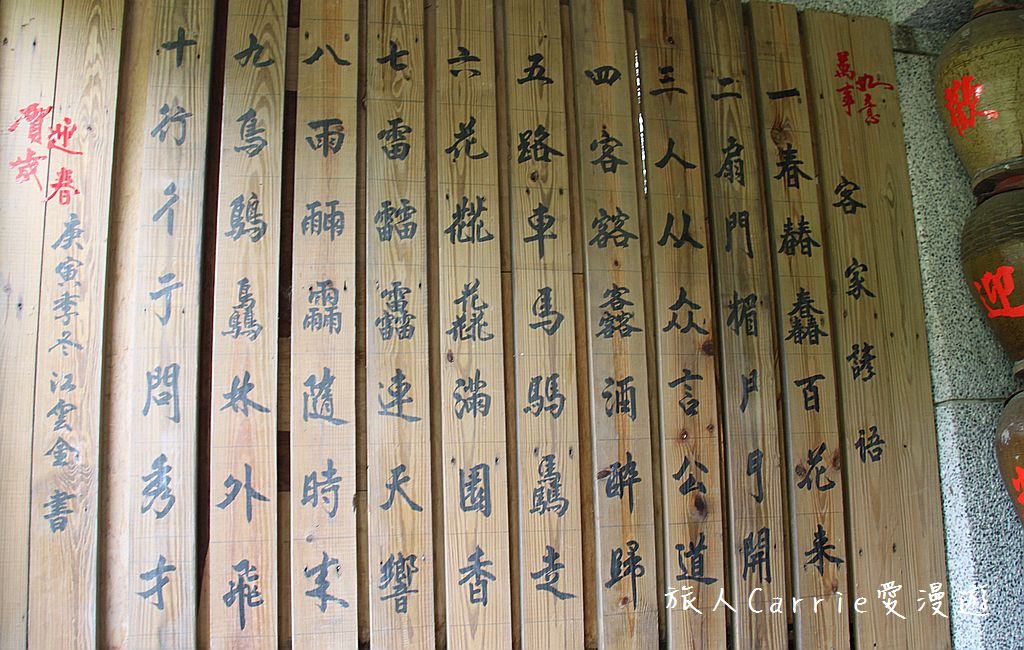 萬事
如意
客家諺語
一春百花來
二扇門楣門開
三人从众言公道
四客酒醉歸
五路車馬驫走
六花滿園香
七雷靐連天響
八雨隨時来
九鳥林外飛
十行彳亍問秀才
迎春
賀歲
庚寅季冬江雲金書
歡
迎
旅人Carrie愛漫遊